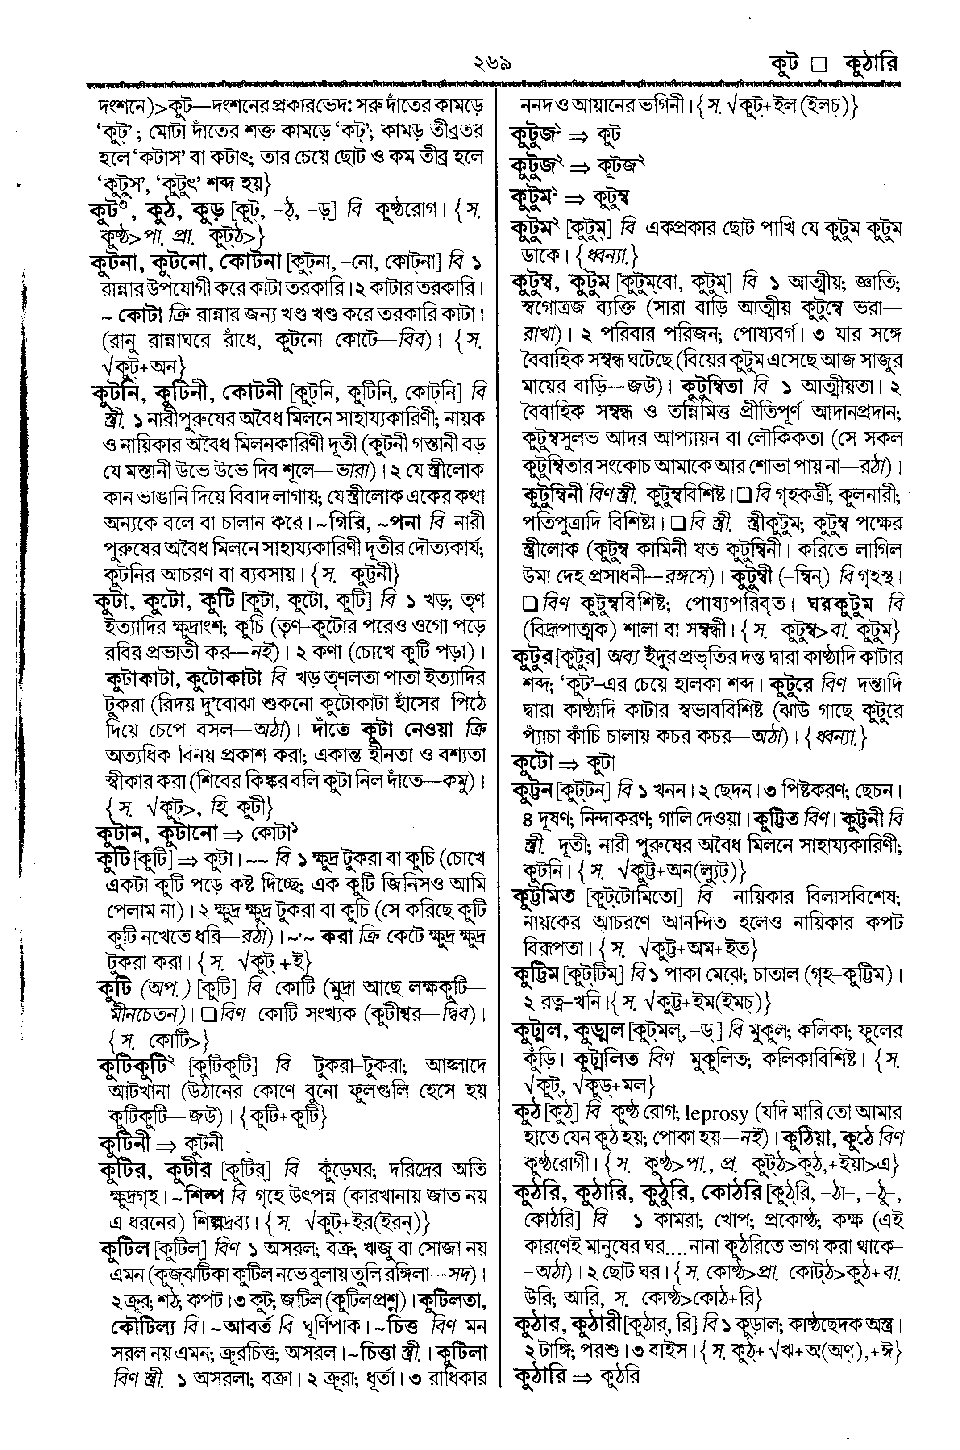 ২৬৯
কুট □ কুঠারি
দংশনে)>কুট—দংশনের প্রকারভেদ: সরু দাঁতের কামড়ে
‘কুট’; মোটা দাঁতের শক্ত কামড়ে ‘কট’; কামড় তীব্রতর
হলে ‘কটাস’ বা কটাৎ; তার চেয়ে ছোট ও কম তীব্র হলে
‘কুটুস’, ‘কুটুৎ’ শব্দ হয়}
কুট৩, কুঠ, কুড় [কুট, -ঠ্, -ড়্] বি কুষ্ঠরোগ। {স.
কুষ্ঠ>পা. প্রা. কুট্ঠ>}
কুটনা, কুটনো, কোটনা [কুট্না, -নো, কোট্না] বি ১
রান্নার উপযোগী করে কাটা তরকারি। ২ কাটার তরকারি।
~ কোটা ক্রি রান্নার জন্য খণ্ড খণ্ড করে তরকারি কাটা।
(রানু রান্নাঘরে রাঁধে, কুটনো কোটে—বিব)। {স.
√কুট্+অন}
কুটনি, কুটিনী, কোটনী [কুট্নি, কুটিনি, কোট্নি] বি
স্ত্রী. ১ নারীপুরুষের অবৈধ মিলনে সাহায্যকারিণী; নায়ক
ও নায়িকার অবৈধ মিলনকারিণী দূতী (কুটনী গস্তানী বড়
যে মস্তানী উভে উভে দিব শূলে—ভারা)। ২ যে স্ত্রীলোক
কান ভাঙানি দিয়ে বিবাদ লাগায়; যে স্ত্রীলোক একের কথা
অন্যকে বলে বা চালান করে। ~গিরি, ~পনা বি নারী
পুরুষের অবৈধ মিলনে সাহায্যকারিণী দূতীর দৌত্যকার্য;
কুটনির আচরণ বা ব্যবসায়। {স. কুট্টনী}
কুটা, কুটো, কুটি [কুটা, কুটো, কুটি] বি ১ খড়; তৃণ
ইত্যাদির ক্ষুদ্রাংশ; কুচি (তৃণ-কুটোর পরেও ওগো পড়ে
রবির প্রভাতী কর—নই)। ২ কণা (চোখে কুটি পড়া)।
কুটাকাটা, কুটোকাটা বি খড় তৃণলতা পাতা ইত্যাদির
টুকরা (রিদয় দু’বোঝা শুকনো কুটোকাটা হাঁসের পিঠে
দিয়ে চেপে বসল—অঠা)। দাঁতে কুটা নেওয়া ক্রি
অত্যধিক বিনয় প্রকাশ করা; একান্ত হীনতা ও বশ্যতা
স্বীকার করা (শিবের কিঙ্কর বলি কুটা নিল দাঁতে—কমু)।
{স. √কুট্>, হি. কুটী}
কুটান, কুটানো ⇒ কোটা১
কুটি [কুটি] ⇒ কুটা। ~~ বি ১ ক্ষুদ্র টুকরা বা কুচি (চোখে
একটা কুটি পড়ে কষ্ট দিচ্ছে; এক কুটি জিনিসও আমি
পেলাম না)। ২ ক্ষুদ্র ক্ষুদ্র টুকরা বা কুচি (সে করিছে কুটি
কুটি নখেতে ধরি—রঠা)। ~~ করা ক্রি কেটে ক্ষুদ্র ক্ষুদ্র
টুকরা করা। {স. √কুট্ +ই}
কুটি (অপ.) [কুটি] বি কোটি (মুদ্রা আছে লক্ষকুটি—
মীনচেতন)। □ বিণ কোটি সংখ্যক (কুটীশ্বর—দ্বিব)।
{স. কোটি>}
কুটিকুটি২ [কুটিকুটি] বি টুকরা-টুকরা; আহ্লাদে
আটখানা (উঠানের কোণে বুনো ফুলগুলি হেসে হয়
কুটিকুটি—জউ)। {কুটি+কুটি}
কুটিনী ⇒ কুটনী
কুটির, কুটীর [কুটির্] বি কুঁড়েঘর; দরিদ্রের অতি
ক্ষুদ্রগৃহ। ~শিল্প বি গৃহে উৎপন্ন (কারখানায় জাত নয়
এ ধরনের) শিল্পদ্রব্য। {স. √কুট্+ইর(ইরন্)}
কুটিল [কুটিল্] বিণ ১ অসরল; বক্র; ঋজু বা সোজা নয়
এমন (কুজ্ঝটিকা কুটিল নভে বুলায় তুলি রঙ্গিলা—সদ)।
২ ক্রূর; শঠ; কপট। ৩ কূট; জটিল (কুটিলপ্রশ্ন)। কুটিলতা,
কৌটিল্য বি। ~আবর্ত বি ঘূর্ণিপাক। ~চিত্ত বিণ মন
সরল নয় এমন; ক্রূরচিত্ত; অসরল। ~চিত্তা স্ত্রী.। কুটিলা
বিণ স্ত্রী. ১ অসরলা; বক্রা। ২ ক্রূরা; ধূর্তা। ৩ রাধিকার
ননদ ও আয়ানের ভগিনী। {স. √কুট্+ইল (ইলচ্)}
কুটুজ১ ⇒ কুট
কুটুজ২ ⇒ কূটজ২
কুটুম১ ⇒ কুটুম্ব
কুটুম২ [কুটুম্] বি একপ্রকার ছোট পাখি যে কুটুম কুটুম
ডাকে। {ধ্বন্যা.}
কুটুম্ব, কুটুম [কুটুম্বো, কুটুম্] বি ১ আত্মীয়; জ্ঞাতি;
স্বগোত্রজ ব্যক্তি (সারা বাড়ি আত্মীয় কুটুম্বে ভরা—
রাখা)। ২ পরিবার পরিজন; পোষ্যবর্গ। ৩ যার সঙ্গে
বৈবাহিক সম্বন্ধ ঘটেছে (বিয়ের কুটুম এসেছে আজ সাজুর
মায়ের বাড়ি—জউ)। কুটুম্বিতা বি ১ আত্মীয়তা। ২
বৈবাহিক সম্বন্ধ ও তন্নিমিত্ত প্রীতিপূর্ণ আদানপ্রদান;
কুটুম্বসুলভ আদর আপ্যায়ন বা লৌকিকতা (সে সকল
কুটুম্বিতার সংকোচ আমাকে আর শোভা পায় না—রঠা)।
কুটুম্বিনী বিণ স্ত্রী. কুটুম্ববিশিষ্টা। □ বি গৃহকর্ত্রী; কুলনারী;
পতিপুত্রাদি বিশিষ্টা। □ বি স্ত্রী. স্ত্রীকুটুম; কুটুম্ব পক্ষের
স্ত্রীলোক (কুটুম্ব কামিনী যত কুটুম্বিনী। করিতে লাগিল
উমা দেহ প্রসাধনী—রঙ্গসে)। কুটুম্বী (-ম্বিন্) বি গৃহস্থ।
□ বিণ কুটুম্ববিশিষ্ট; পোষ্যপরিবৃত। ঘরকুটুম বি
(বিদ্রূপাত্মক) শালা বা সম্বন্ধী। {স. কুটুম্ব>বা. কুটুম}
কুটুর [কুটুর্] অব্য ইঁদুর প্রভৃতির দন্ত দ্বারা কাষ্ঠাদি কাটার
শব্দ; ‘কুট’-এর চেয়ে হালকা শব্দ। কুটুরে বিণ দন্তাদি
দ্বারা কাষ্ঠাদি কাটার স্বভাববিশিষ্ট (ঝাউ গাছে কুটুরে
প্যাঁচা কাঁচি চালায় কচর কচর—অঠা)। {ধ্বন্যা.}
কুটো ⇒ কুটা
কুট্টন [কুট্টন্] বি ১ খনন। ২ ছেদন। ৩ পিষ্টকরণ; ছেচন।
৪ দূষণ; নিন্দাকরণ; গালি দেওয়া। কুট্টিত বিণ। কুট্টনী বি
স্ত্রী. দূতী; নারী পুরুষের অবৈধ মিলনে সাহায্যকারিণী;
কুটনি। {স. √কুট্ট+অন(ল্যুট্)}
কুট্টমিত [কুট্টোমিতো] বি নায়িকার বিলাসবিশেষ;
নায়কের আচরণে আনন্দিত হলেও নায়িকার কপট
বিরূপতা। {স. √কুট্ট+অম+ইত}
কুট্টিম [কুট্টিম্] বি ১ পাকা মেঝে; চাতাল (গৃহ-কুট্টিম)।
২ রত্ন-খনি। {স. √কুট্ট+ইম(ইমচ্)}
কুট্মল, কুড্মল [কুট্মল্, -ড্] বি মুকুল; কলিকা; ফুলের
কুঁড়ি। কুট্মলিত বিণ মুকুলিত; কলিকাবিশিষ্ট। {স.
√কুট্, √কুড্+মল}
কুঠ [কুঠ্] বি কুষ্ঠ রোগ; leprosy (যদি মারি তো আমার
হাতে যেন কুঠ হয়; পোকা হয়—নই)। কুঠিয়া, কুঠে বিণ
কুষ্ঠরোগী। {স. কুষ্ঠ>পা., প্র. কুট্ঠ>কুঠ,+ইয়া>এ}
কুঠরি, কুঠারি, কুঠুরি, কোঠরি [কুঠ্রি, -ঠা-, -ঠু-,
কোঠ্রি] বি ১ কামরা; খোপ; প্রকোষ্ঠ; কক্ষ (এই
কারণেই মানুষের ঘর....নানা কুঠরিতে ভাগ করা থাকে-
-অঠা)। ২ ছোট ঘর। {স. কোষ্ঠ>প্রা. কোট্ঠ>কুঠ+বা.
উরি; আরি, স. কোষ্ঠ>কোঠ+রি}
কুঠার, কুঠারী [কুঠার্, রি] বি ১ কুড়াল; কাষ্ঠছেদক অস্ত্র।
২ টাঙ্গি; পরশু। ৩ বাইস। {স. কুঠ+ √ঋ+অ(অণ্),+ঈ}
কুঠারি ⇒ কুঠরি